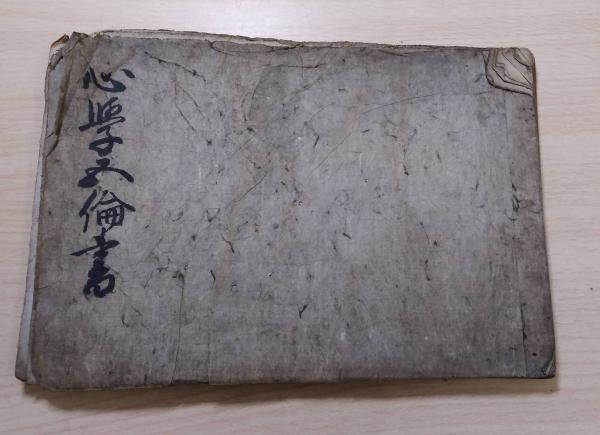 心學五倫書